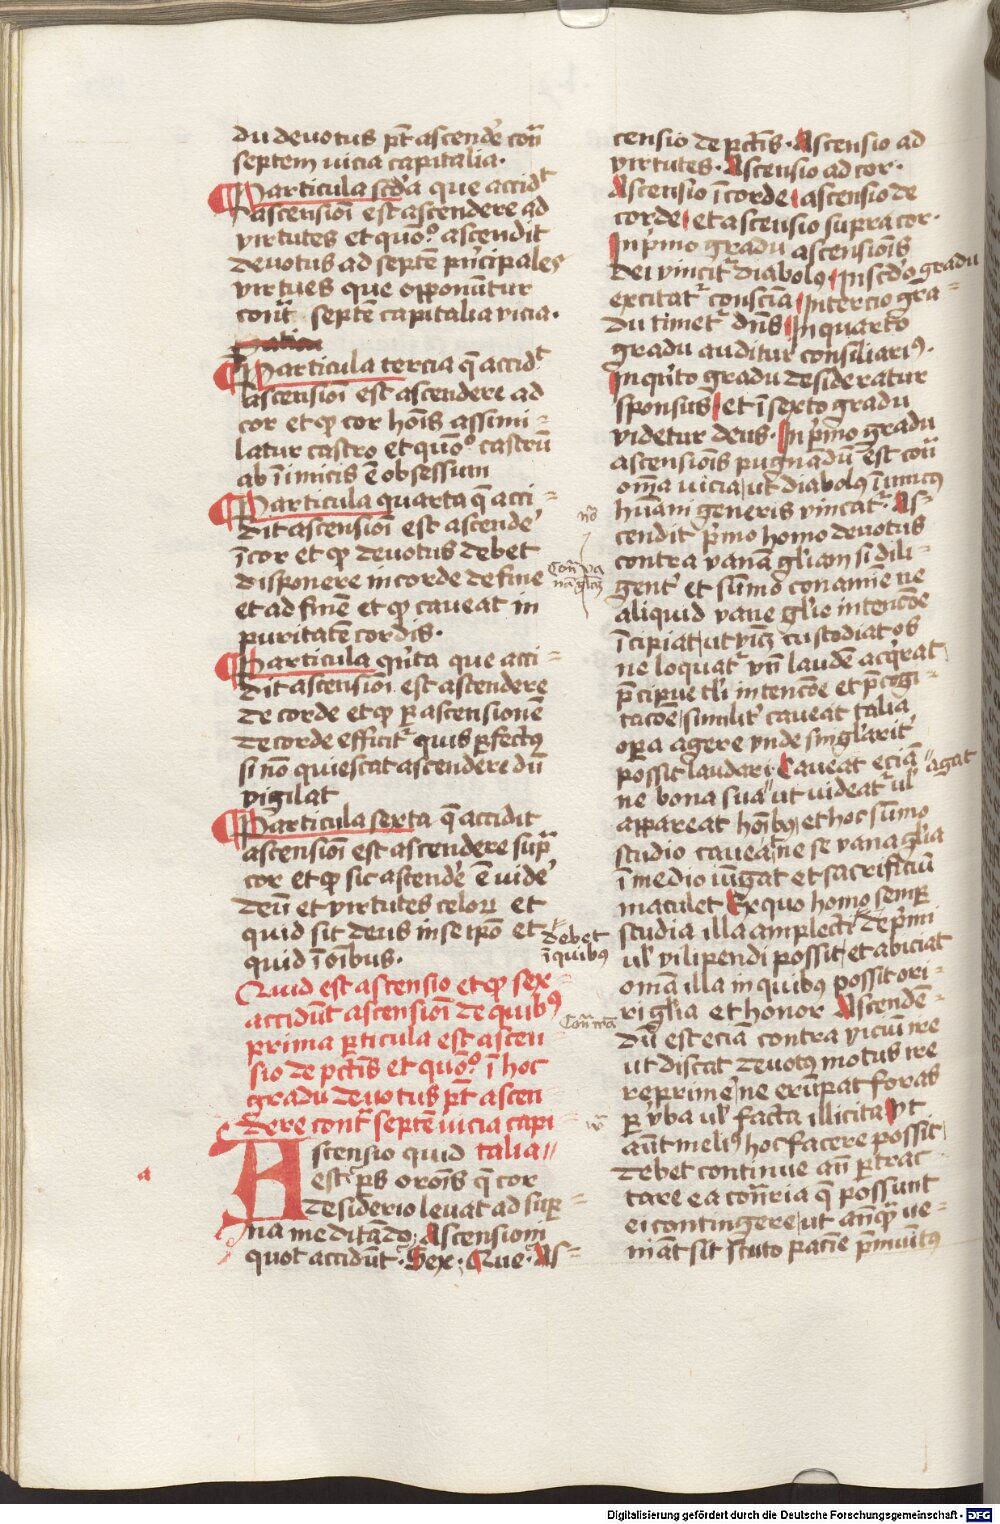 du deuotus pt̄ ascende᷑ cōt᷑
septem uicia capitalia·
Particula scd̓a que accidt
ascensioī est ascendere ad
virtutes et quō? ascendit
deuotus ad septē principales
virtues que opponūtur
cont᷑ septē capitalia vicia·
Particula tercia q̄ accidt
ascensioī est ascendere ad
cor et ꝙ cor hoīs assimi=
latur castro et quō? castrū
ab īimicis ē obsessum
Particula quarta q̄ acci=
dit ascensioī est ascende᷑
ī cor et ꝙ deuotus debet
disponere in corde de fine
et ad finē et ꝙ caueat in
puritatē cordis·
Particula qn̄ta que acci=
dit ascensioī est ascendere
de corde et ꝙ ꝑ ascensionē
de corde efficit᷑ quis ꝑfectꝰ
si nō quiescat ascendere dū
vigilat
Particula sexta q̄ accidit
ascensioī est ascendere sup᷑
cor et ꝙ sic ascende᷑ ē uide᷑
deū et virtutes celoꝝ et
quid sit deus in se ip̄o et
quid ī oībus·
Quid est ascensio et ꝙ sex
accidūt ascensioī de quibꝰ
prima ꝑticula est ascen
sio de pctīs et quō? ī hoc
gradu deuotus pt̄ ascen
dere cont᷑ septē uicia capi
talia//
Ascensio quid
est· ꝑs oroīs q̄ cor
desiderio leuat ad suꝑ=
na meditādo· Ascensioni
quot accidūt· Sex· Que· As=
a
censio de pctīs· Ascensio ad
virtutes· Ascensio ad cor·
Ascensio ī corde ascensio de
corde et ascensio supra cor·
In p̄mo gradu ascensiōis
dei vincit᷑ diabolꝰ In scd̓o gradu
excitat᷑ consciā In tercio gra=
du timet᷑ dn̄s In quarto
gradu auditur consiliariꝰ·
In qn̄to gradu desideratur
sponsus et ī sexto gradu
videtur deus· In p̄mo gradu
ascensiōis pugnādū est cōt᷑
om̄a uicia ut diabolꝰ īimicꝰ
hūani generis vincat᷑· As=
cendit p̄mo homo deuotus
contra vanā gl̄iam si dili=
gent᷑ et sūmo conamīe ne
aliquid vane gl̄ie intencōe
īcipiat ut
custodiat os
ne loquat᷑ vn̄ laudē acqrat
p̄cipue tl̄i intencōe et p̄cogi=
tacōe similit᷑ caueat talia
oꝑa agere vnde singl̄arit᷑
possit laudari· Caueat eciā
agat
ne bona sua ut uideat᷑ ul̓
appareat hoībꝰ et hoc sūmo
studio caueat ne se vana gl̄ia
ī medio iūgat et sacrificiū
maculet Ex quo homo semꝑ
debet
studia illa amplecti de p̄mi
ul̓ vilipendi possit et abiciat
ī quibus
om̄a illa in quibꝰ possit ori=
ri gl̄ia et honor Ascendē=
dū est eciā contra viciū ire
ut discat deuotꝰ motus ire
reprime᷑ ne erūpat foras
ꝑ v̓ba ul̓ facta illicita Ut
aūt meliꝰ hoc facere possit
debet continue an̄ ꝑtrac=
tare ea cōt᷑ria q̄ possunt
ei contingere ut an̄qȝ ue=
niāt sit scuto pacīe p̄munitꝰ